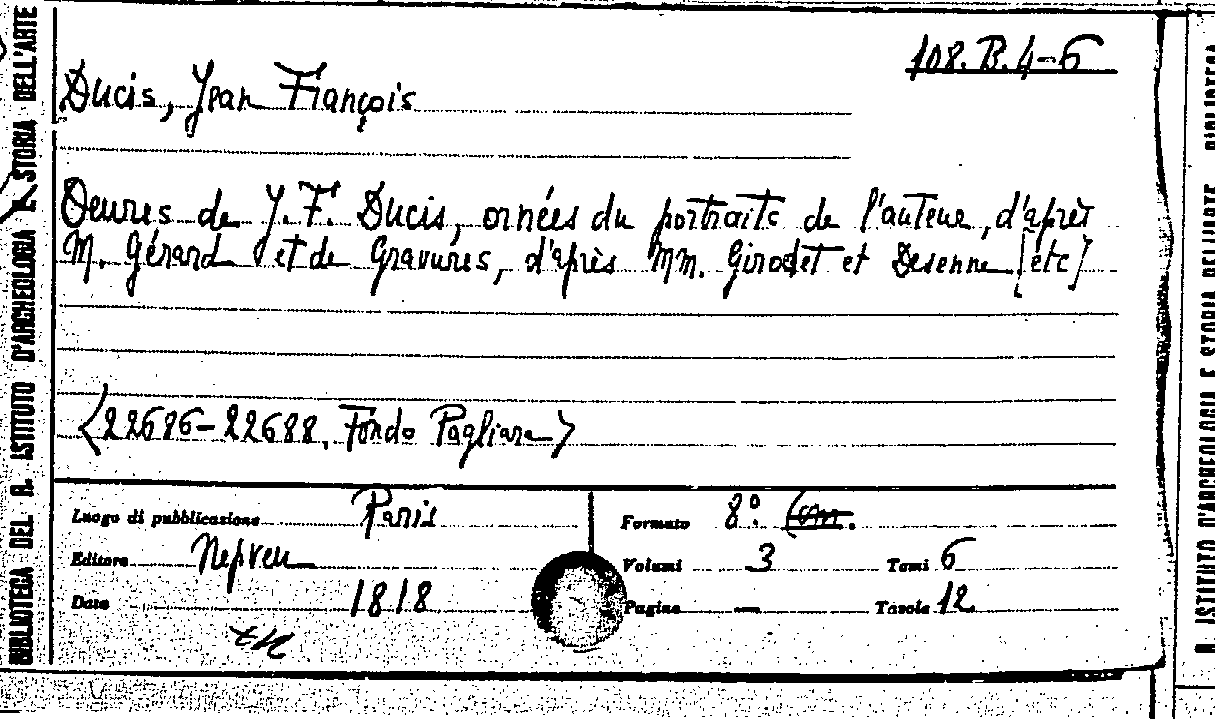 BIBLIOTECA DEL R. ISTITUTO D'ARCHEOLOGIA E STORIA DELL'ARTE
108.B.4-6
Ducis, Jean François
Oeuvres de J.F. Ducis, ornées du portraits de l'auteur, d'après
M. Gérard et de Gravures, d'après MM. Girodet et Desenne [etc]
<22686-22688, Fondo Pagliara>
Luogo di pubblicazione Paris
Formato 8º. cm.
Editore Nepveu
Volumi 3 Tomi 6
Data 1818
Pagine — Tavole 12
R. ISTITUTO D'ARCHEOLOGIA E STORIA DELL'ARTE